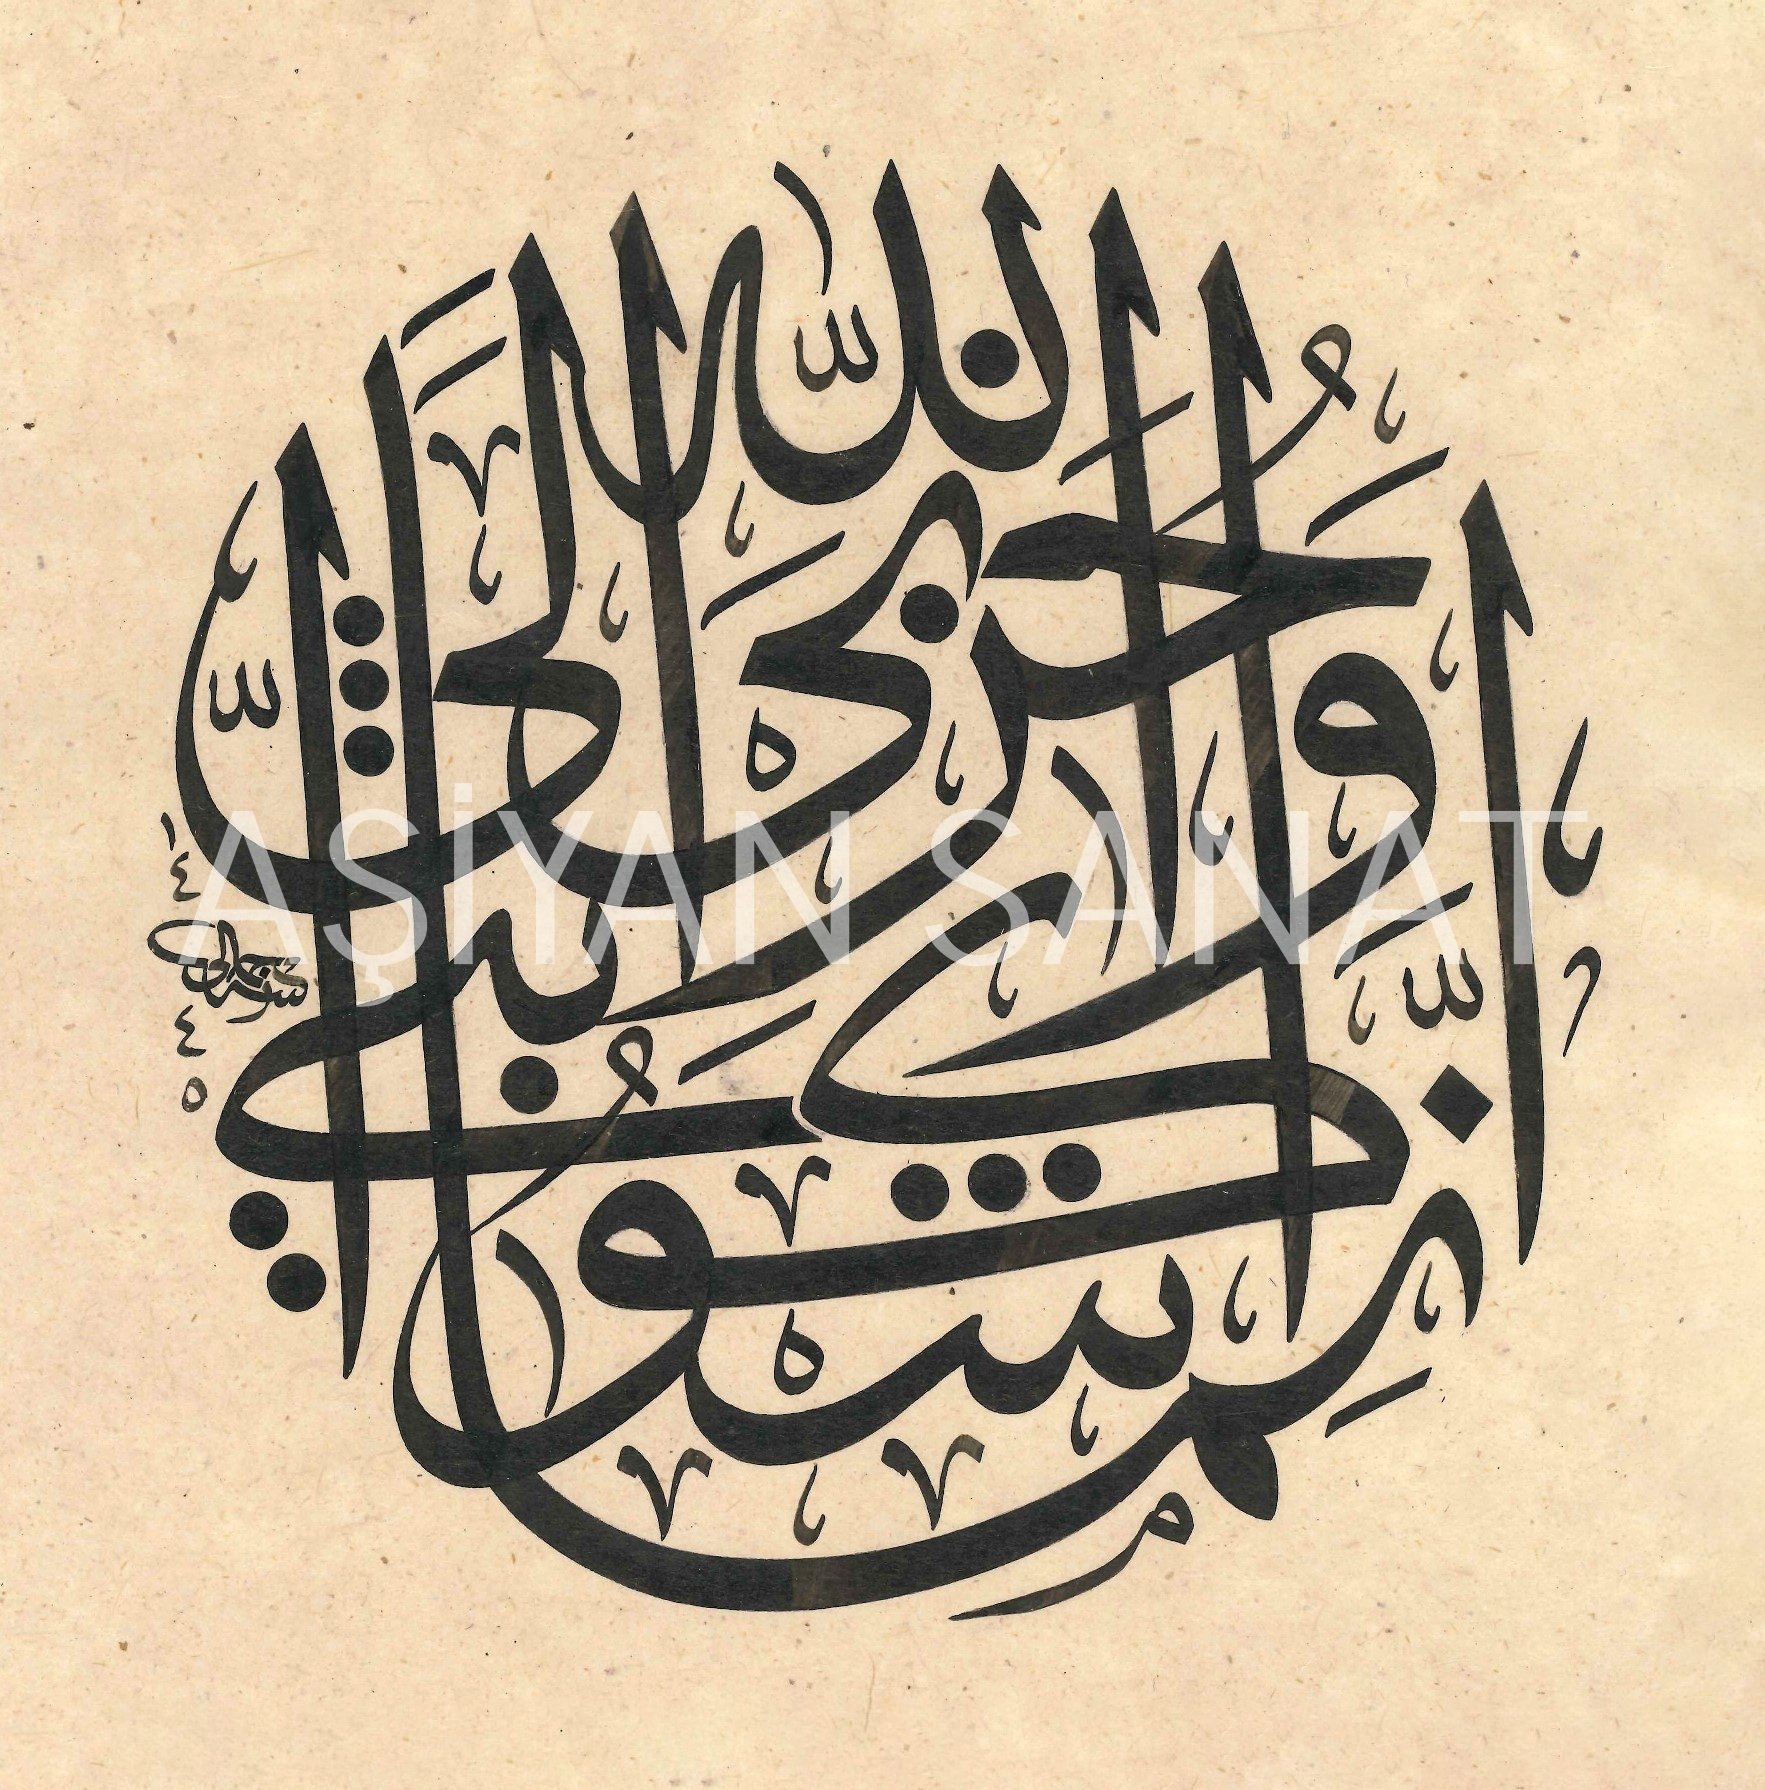 إنما أشكو بثي وحزني إلى الله
١٤٤٥
AŞİYAN SANAT